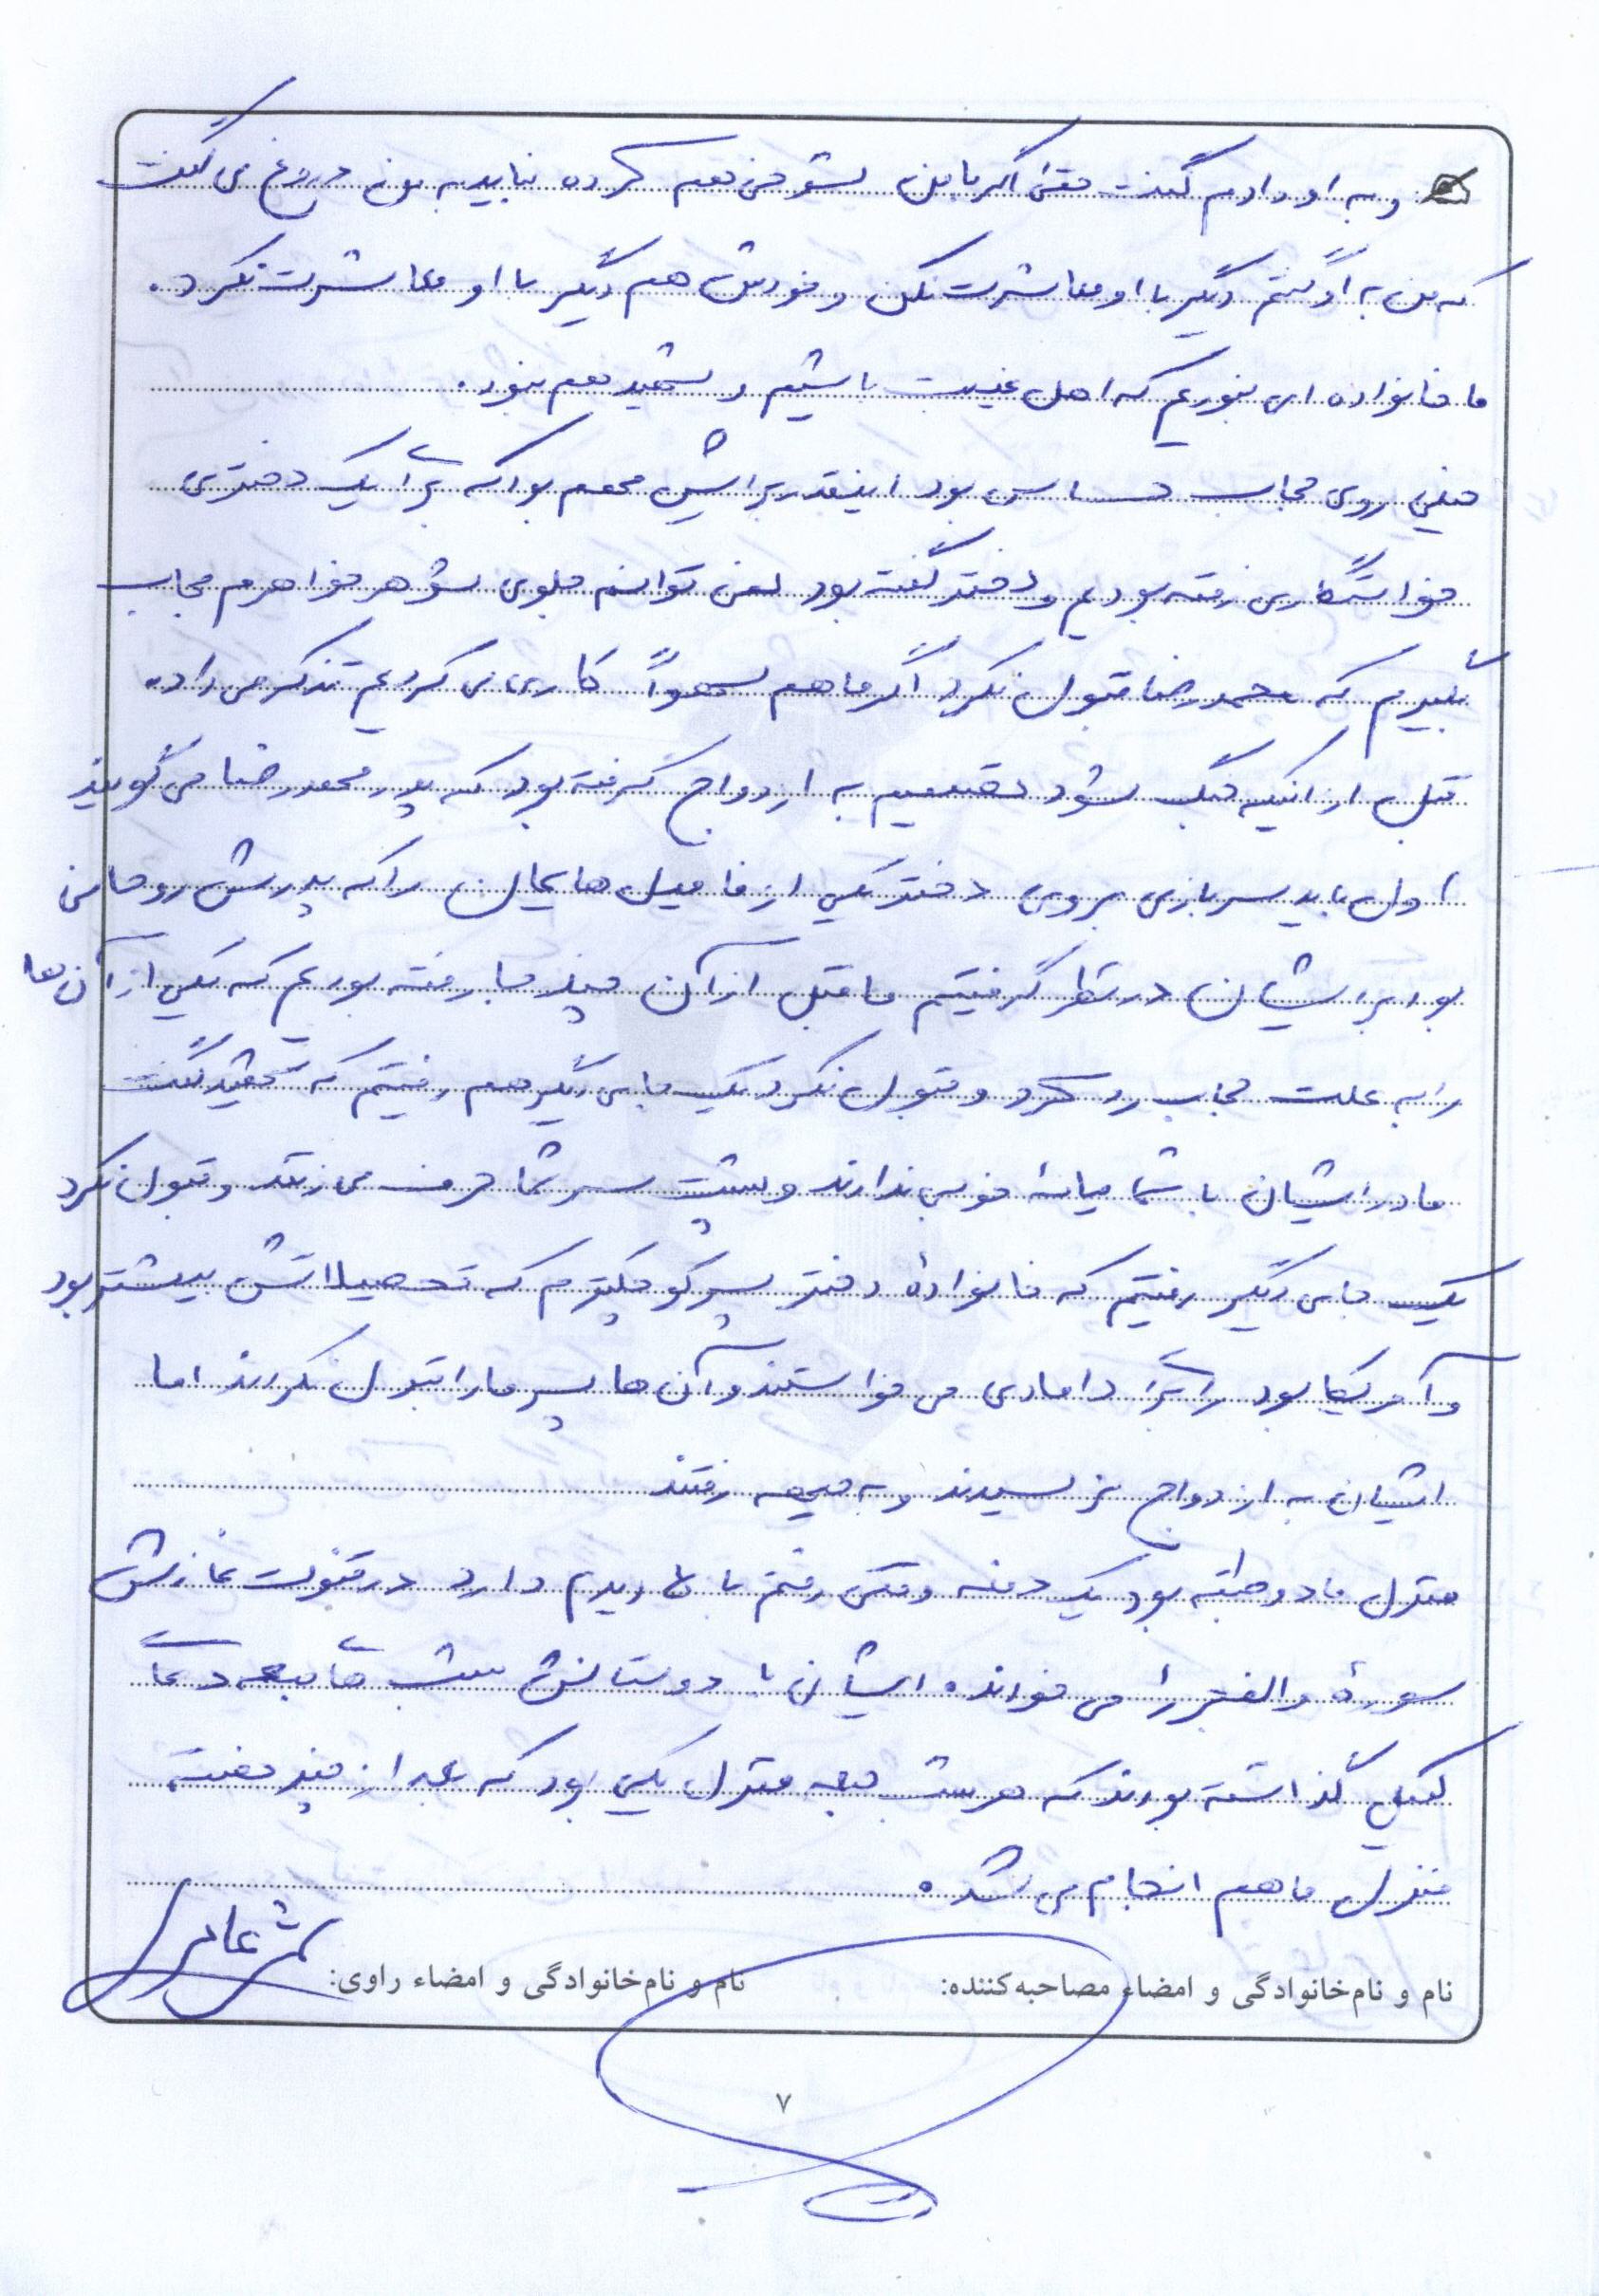 و به او دادم گفت حتی اگر با من شوخی هم کرده نباید به من دروغ می گفت
که من به او گفتم دیگر با او معاشرت نکن و خودش هم دیگر با او معاشرت نکرد.
ما خانواده ای نبودیم که اهل غیبت باشیم و شهید هم نبود.
خیلی روی حجاب حساس بود اینقدر برایش مهم بود که برای یک دختری
خواستگاری رفته بودیم و دختر گفته بود نمی توانم جلوی شوهر خواهرم حجاب
بگیرم که محمدرضا قبول نکرد اگر ما هم سهواً کاری می کردیم تذکر می داد.
قبل از اینکه جنگ شود تصمیم به ازدواج گرفته بود که پدر محمدرضا می گویند
اول باید سربازی بروی دختر یکی از فامیل هایمان را که پدرش روحانی
بود برایشان در نظر گرفتیم ما قبل از آن چند جا رفته بودیم که یکی از آن ها
را به علت حجاب رد کرد و قبول نکرد یک جای دیگر هم رفتیم که شهید گفت
مادر ایشان با شما میانۀ خوبی ندارند و پشت سر شما حرف می زنند و قبول نکرد
یک جای دیگر رفتیم که خانوادۀ دختر پسر کوچکترم که تحصیلاتش بیشتر بود
و آمریکا بود را برای دامادی می خواستند و آن ها پسر ما را قبول نکردند اما
ایشان به ازدواج نرسیدند و به جبهه رفتند
منزل ما دو طبقه بود یک دفعه وقتی رفتم بالا دیدم دارد در قنوت نمازش
سورۀ والفجر را می خواند. ایشان با دوستانش شب های جمعه دعای
کمیل گذاشته بودند که هر شب جمعه منزل یکی بود که بعد از چند هفته
منزل ما هم انجام می شد.
نام و نام‌خانوادگی و امضاء مصاحبه‌کننده: نام و نام‌خانوادگی و امضاء راوی:
۷